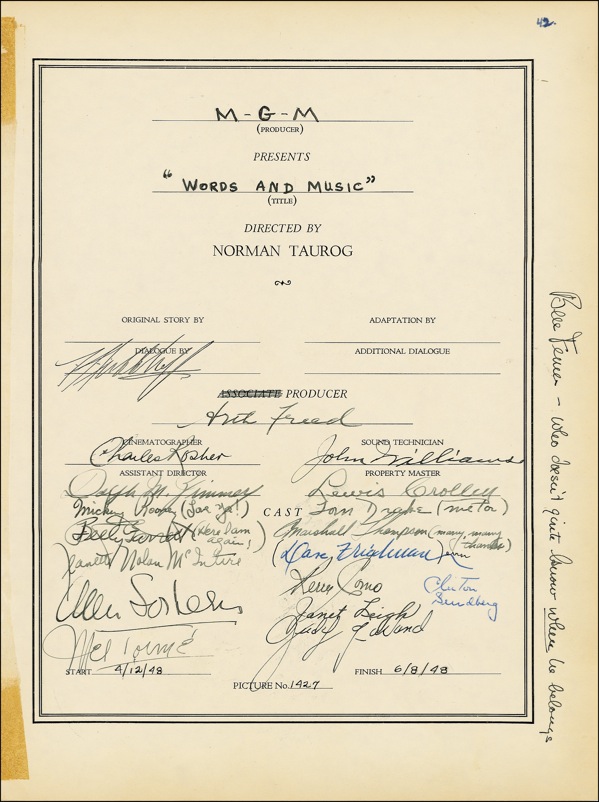 42
M-G-M
(PRODUCER)
PRESENTS
"WORDS AND MUSIC"
(TITLE)
DIRECTED BY
NORMAN TAUROG
ORIGINAL STORY BY
ADAPTATION BY
DIALOGUE BY
ADDITIONAL DIALOGUE
ASSOCIATE PRODUCER
Arth Freed
CINEMATOGRAPHER
SOUND TECHNICIAN
Charles Rosher
John Williams
ASSISTANT DIRECTOR
PROPERTY MASTER
Dolph M. Zimmer
Lewis Crolley
CAST
Mickey Rooney (Love ya!)
Tom Drake (me too)
Betty Garrett (Here I am again!)
Marshall Thompson (many, many thanks)
Jeanette Nolan McIntire
(Dave Friedman)
Perry Como
Clinton Sundberg
Allen
Janet Leigh
Judy Garland
Mel Tormé
START 4/12/48
FINISH 6/8/48
PICTURE No. 1427
- who doesn't quite know where he belongs